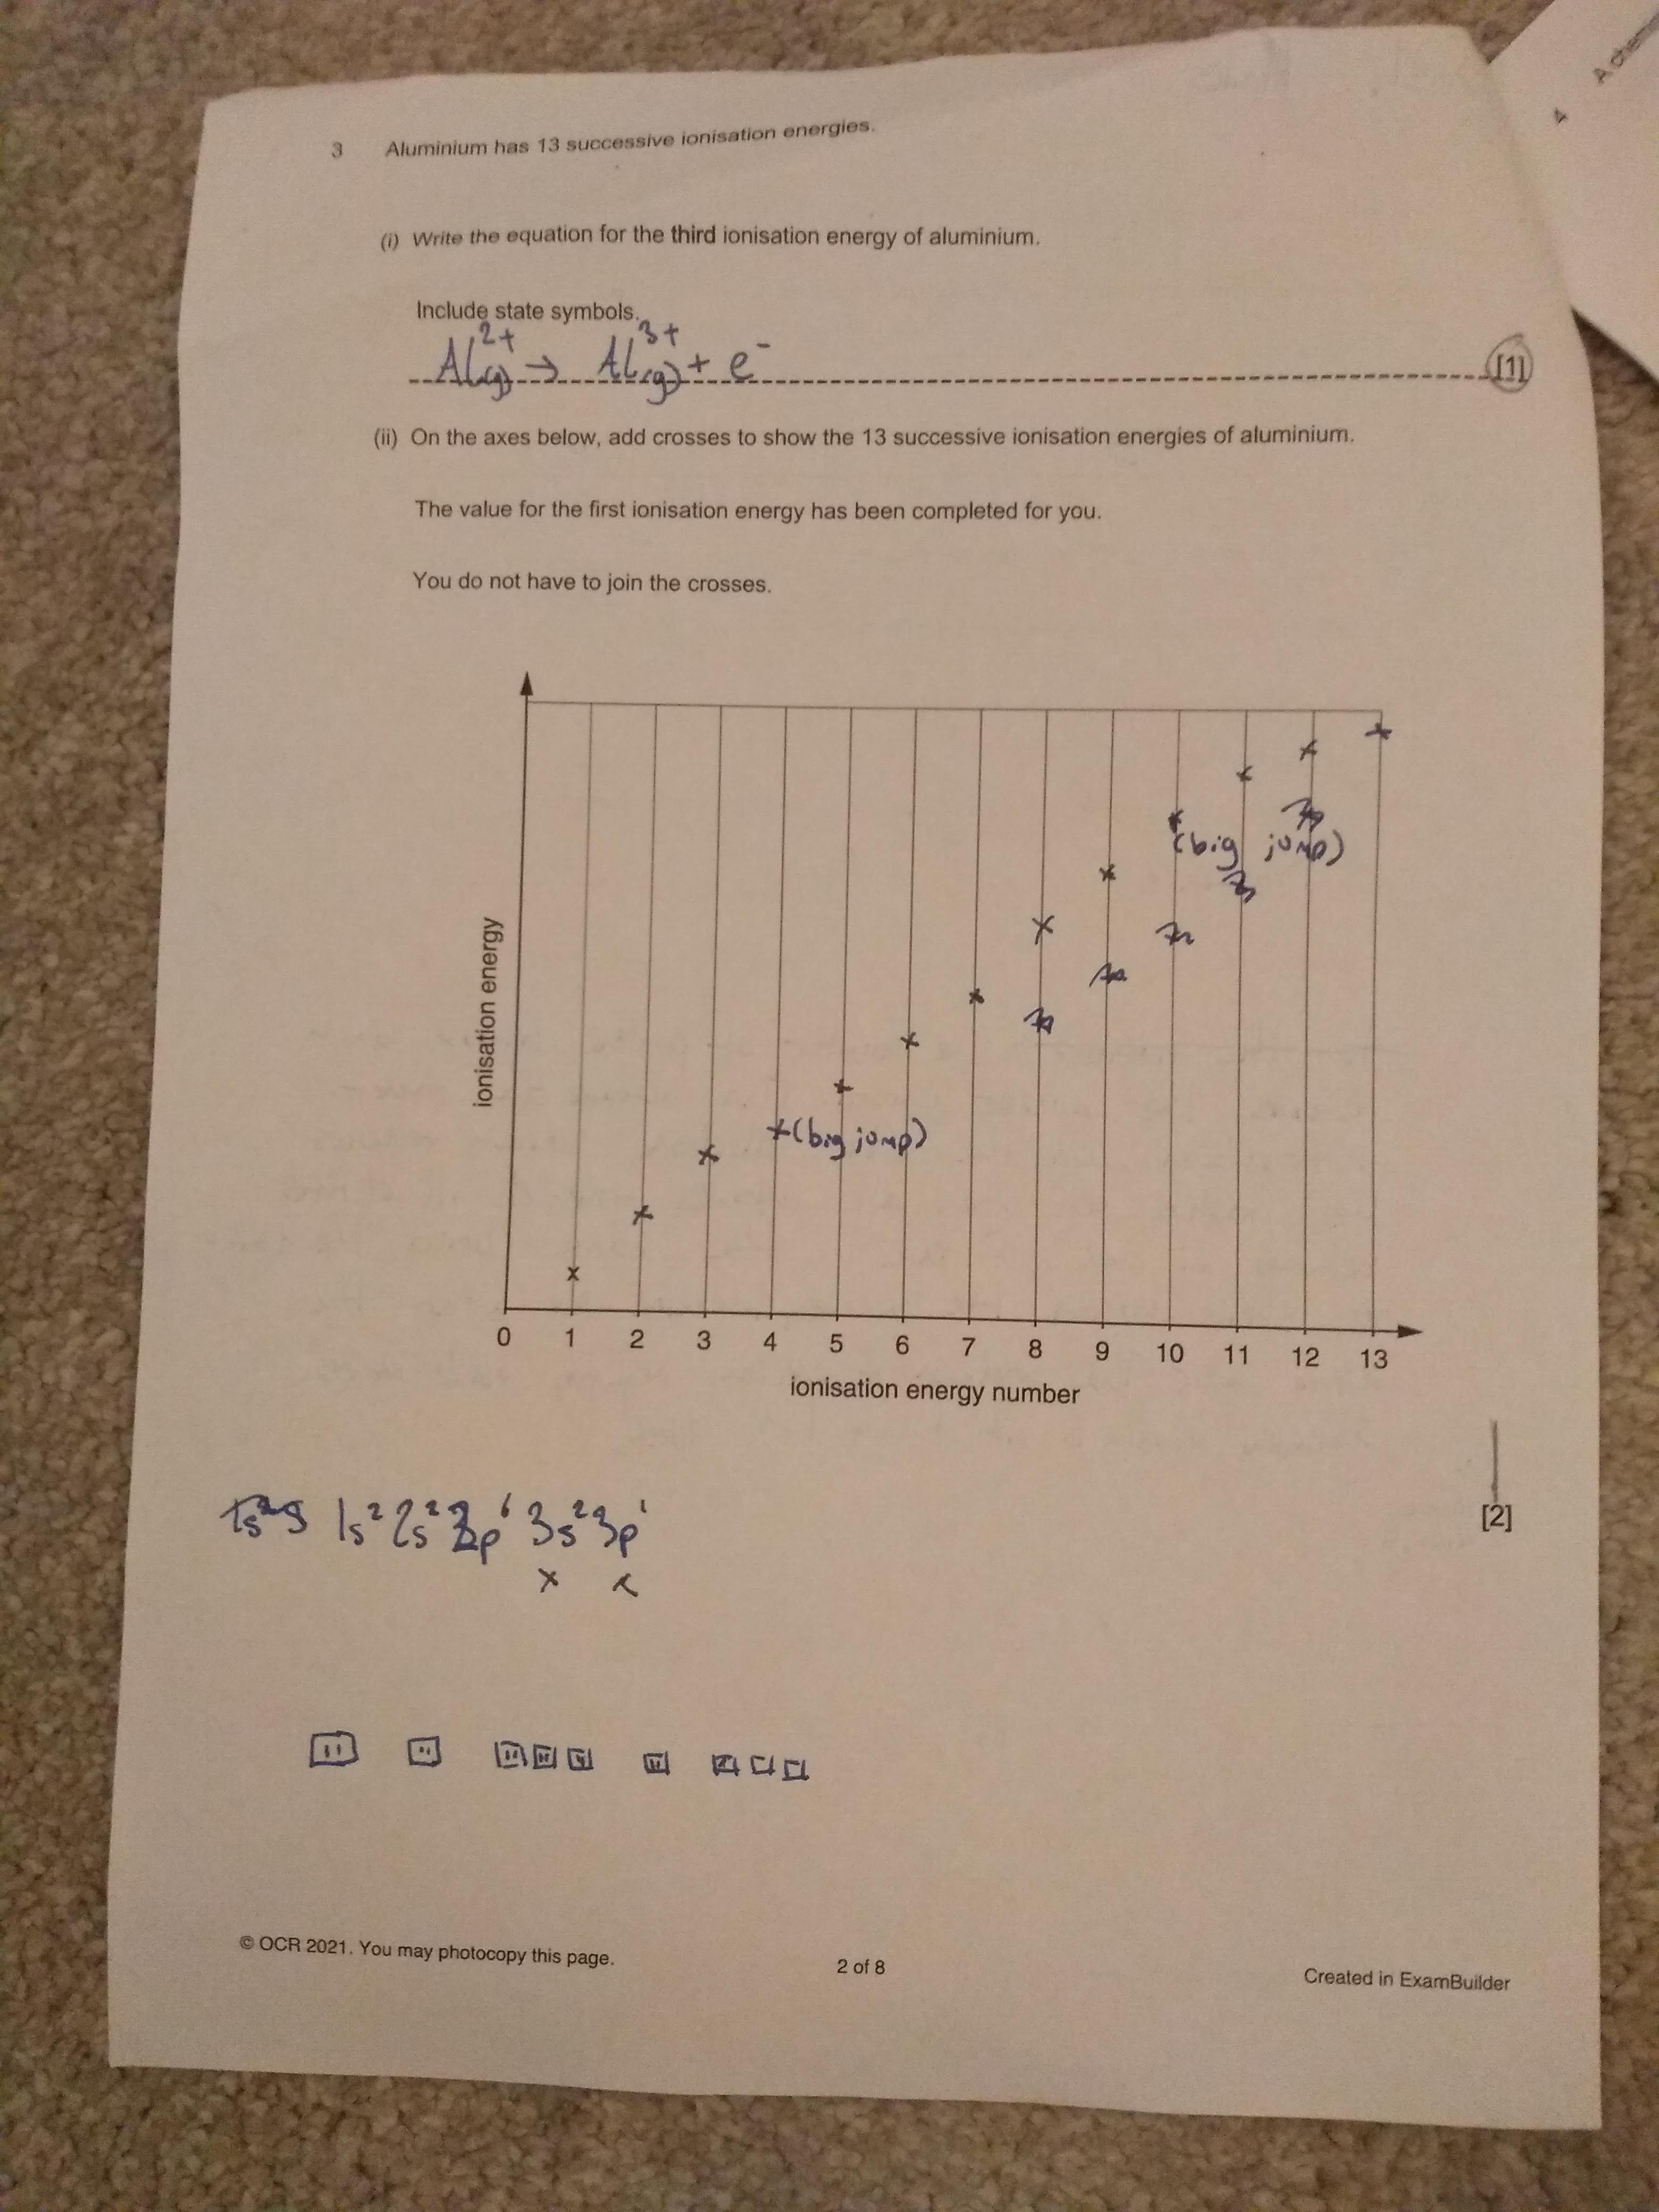 A chem
4
3 Aluminium has 13 successive ionisation energies.
(i) Write the equation for the third ionisation energy of aluminium.
Include state symbols.
Al²⁺(g) → Al³⁺(g) + e⁻ [1]
(ii) On the axes below, add crosses to show the 13 successive ionisation energies of aluminium.
The value for the first ionisation energy has been completed for you.
You do not have to join the crosses.
ionisation energy
(big jump)
(big jump)
0 1 2 3 4 5 6 7 8 9 10 11 12 13
ionisation energy number
[2]
1s² 2s² 2p⁶ 3s² 3p¹
© OCR 2021. You may photocopy this page. 2 of 8 Created in ExamBuilder